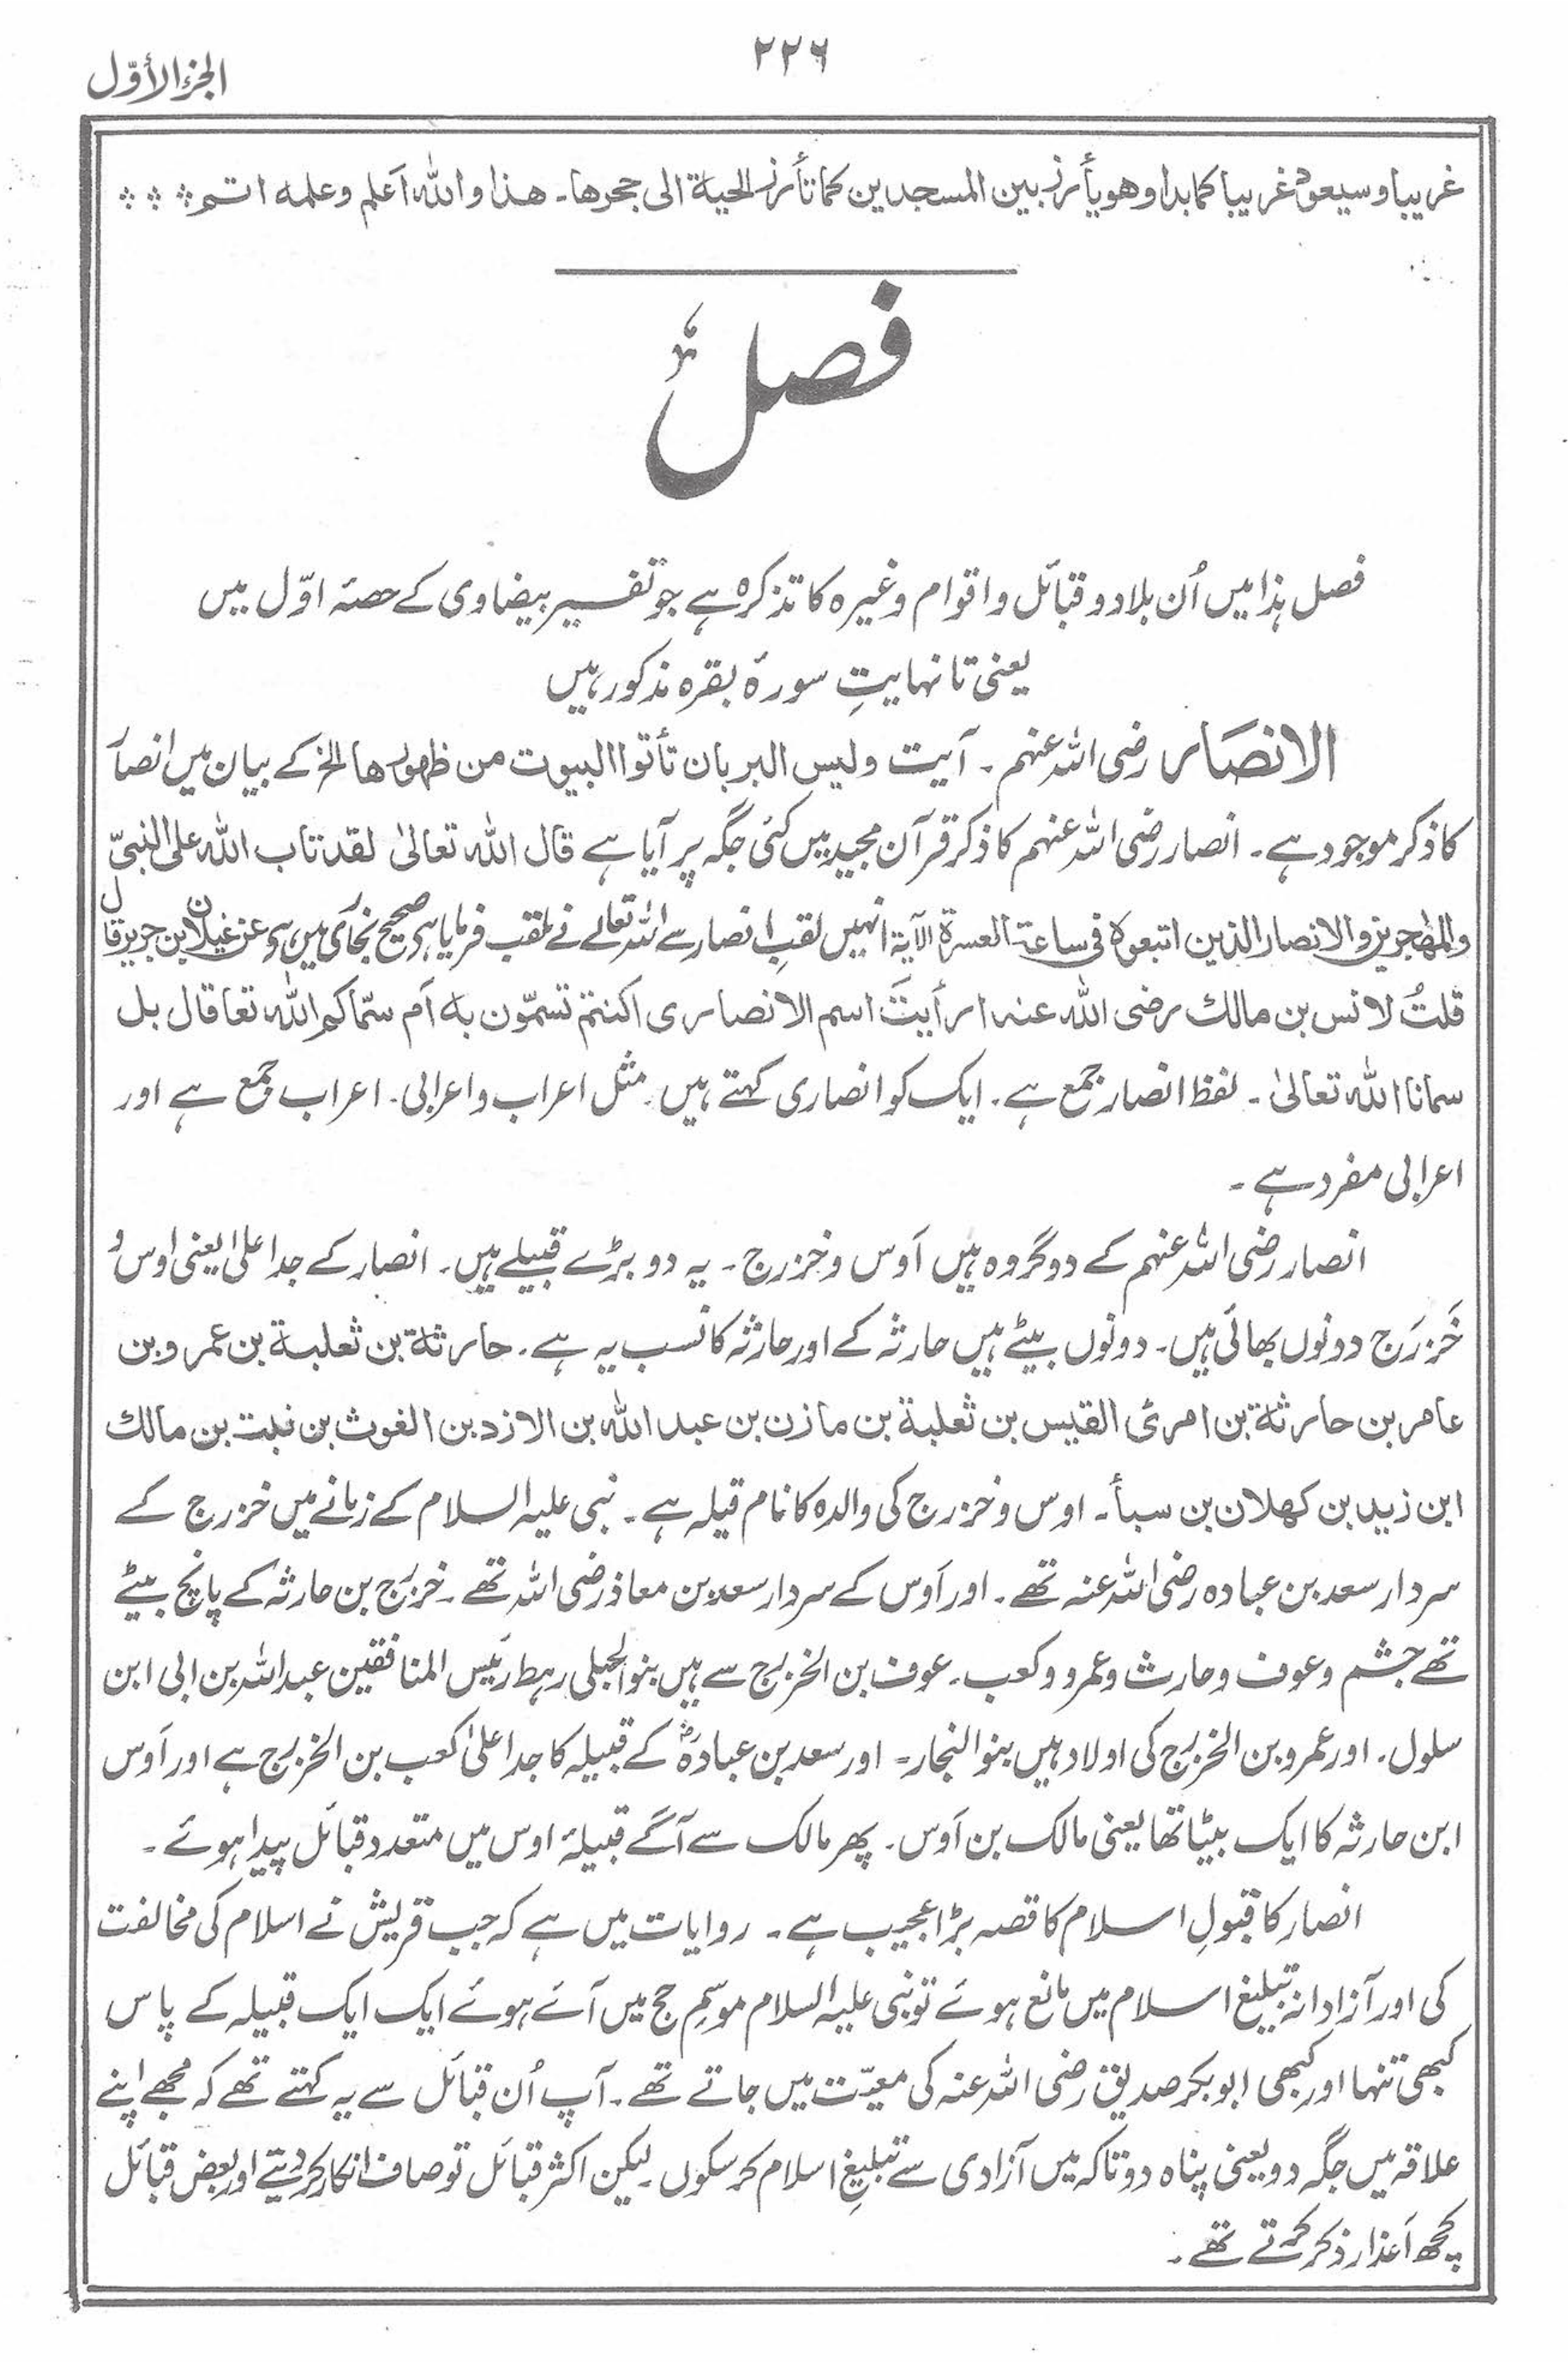 ۲۲۶
الجزء الأوّل
غریبا وسیعود غریبا کما بدا وهو یأرز بین المسجدین کما تأرز الحیة الی جحرها۔ هذا والله اَعلم وعلمه اتم
فصل
فصل ہٰذا میں اُن بلاد و قبائل و اقوام وغیرہ کا تذکرہ ہے جو تفسیر بیضاوی کے حصۂ اوّل میں
یعنی تا نہایتِ سورۂ بقرہ مذکور ہیں
الانصَار رضی اللہ عنہم۔ آیت ولیس البر بان تأتوا البیوت من ظهورها الخ کے بیان میں انصار
کا ذکر موجود ہے۔ انصار رضی اللہ عنہم کا ذکر قرآن مجید میں کئی جگہ پر آیا ہے قال اللہ تعالیٰ لقد تاب اللہ علی النبیّ
والمهٰجرین والانصار الذین اتبعوہ فی ساعة العسرة الآیة انہیں لقبِ انصار سے اللہ تعالےٰ نے ملقب فرمایا ہے صحیح بخاری میں ہے عن غیلان ابن جریر قال
قلتُ لانس بن مالك رضی اللہ عنہ ارأیتَ اسم الانصاری اکنتم تسمّون به اَم سمّاکم اللہ تعا قال بل
سمانا اللہ تعالیٰ۔ لفظ انصار جمع ہے۔ ایک کو انصاری کہتے ہیں۔ مثل اعراب و اعرابی۔ اعراب جمع ہے اور
اعرابی مفرد ہے۔
انصار رضی اللہ عنہم کے دو گروہ ہیں اَوس و خزرج۔ یہ دو بڑے قبیلے ہیں۔ انصار کے جد اعلیٰ یعنی اوس و
خَزرَج دونوں بھائی ہیں۔ دونوں بیٹے ہیں حارثہ کے اور حارثہ کا نسب یہ ہے۔ حارثة بن ثعلبة بن عمرو بن
عامر بن حارثة بن امرئ القیس بن ثعلبة بن مازن بن عبد اللہ بن الازد بن الغوث بن نبت بن مالك
ابن زید بن کهلان بن سبأ۔ اوس و خزرج کی والدہ کا نام قیلہ ہے۔ نبی علیہ السلام کے زمانے میں خزرج کے
سردار سعد بن عبادہ رضی اللہ عنہ تھے۔ اور اَوس کے سردار سعد بن معاذ رضی اللہ تھے۔ خزرَج بن حارثہ کے پانچ بیٹے
تھے جشم و عوف و حارث و عمرو و کعب۔ عوف بن الخزرج سے ہیں بنو الحبلی رہط رئیس المنافقین عبد اللہ بن ابی ابن
سلول۔ اور عمرو بن الخزرج کی اولاد ہیں بنو النجار۔ اور سعد بن عبادہؓ کے قبیلہ کا جد اعلیٰ کعب بن الخزرج ہے اور اَوس
ابن حارثہ کا ایک بیٹا تھا یعنی مالک بن اَوس۔ پھر مالک سے آگے قبیلۂ اوس میں متعدد قبائل پیدا ہوئے۔
انصار کا قبولِ اسلام کا قصہ بڑا عجیب ہے۔ روایات میں ہے کہ جب قریش نے اسلام کی مخالفت
کی اور آزادانہ تبلیغ اسلام میں مانع ہوئے تو نبی علیہ السلام موسمِ حج میں آئے ہوئے ایک ایک قبیلہ کے پاس
کبھی تنہا اور کبھی ابوبکر صدیق رضی اللہ عنہ کی معیّت میں جاتے تھے۔ آپ اُن قبائل سے یہ کہتے تھے کہ مجھے اپنے
علاقہ میں جگہ دو یعنی پناہ دو تاکہ میں آزادی سے تبلیغِ اسلام کر سکوں۔ لیکن اکثر قبائل تو صاف انکار کر دیتے اور بعض قبائل
کچھ اَعذار ذکر کرتے تھے۔